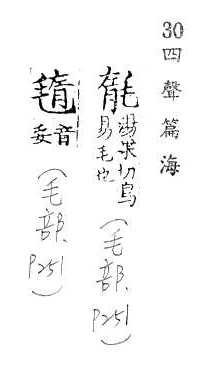 30 四聲篇海
湯果切鳥
易毛也
(毛部、P251)
音
(毛部、P251)